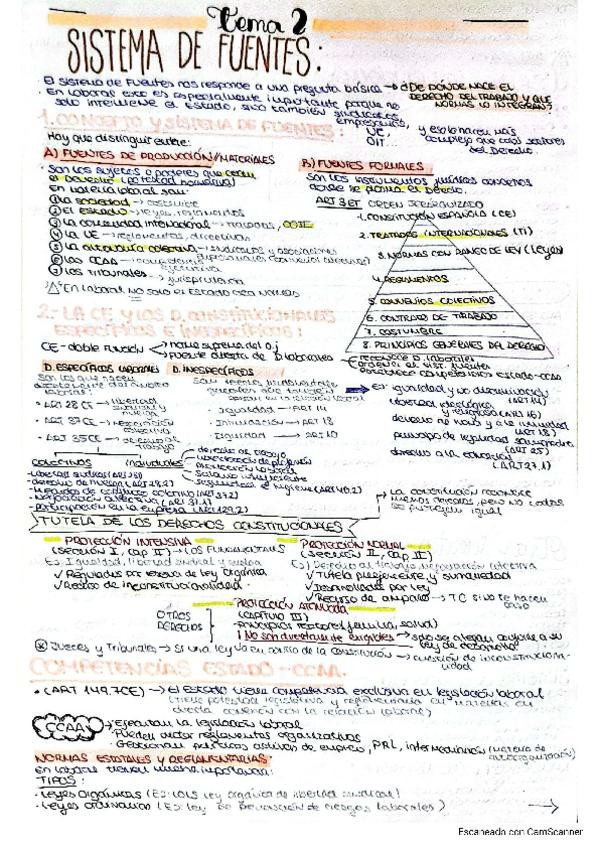 Tema 2
SISTEMA DE FUENTES:
El sistema de fuentes nos responde a una pregunta básica → ¿DE DÓNDE NACE EL
DERECHO DEL TRABAJO Y QUE
NORMAS LO INTEGRAN?
En laboral esto es especialmente importante porque no
solo interviene el Estado, sino también sindicatos
empresarios,
UE,
OIT...
y eso lo hace más
complejo que otros sectores
del Derecho.
1. CONCEPTO Y SISTEMA DE FUENTES:
Hay que distinguir entre:
A) FUENTES DE PRODUCCIÓN/MATERIALES
- Son los sujetos o poderes que crean
el derecho (potestad normativa)
En materia laboral son:
① La sociedad → costumbre
② El estado → leyes, reglamentos
③ La comunidad internacional → tratados, OIT
④ La UE → reglamentos, directivas
⑤ La autonomía colectiva → sindicatos y asociaciones
empresariales (convenios colectivos)
⑥ Las CCAA → competencia
ejecutiva
⑦ Los tribunales → jurisprudencia
En laboral no solo el Estado crea normas
B) FUENTES FORMALES
Son los instrumentos jurídicos concretos
donde se plasma el derecho.
ART 3 ET ORDEN JERARQUIZADO
1. CONSTITUCIÓN ESPAÑOLA (CE)
2. TRATADOS INTERNACIONALES (TI)
3. NORMAS CON RANGO DE LEY (Leyes)
4. REGLAMENTOS
5. CONVENIOS COLECTIVOS
6. CONTRATO DE TRABAJO
7. COSTUMBRE
8. PRINCIPIOS GENERALES DEL DERECHO
2.- LA CE Y LOS D. CONSTITUCIONALES
ESPECÍFICOS E INESPECÍFICOS:
CE - doble función → norma suprema del O.J
→ fuente directa de D. laborales
→ reconocer D. laborales
ordenar el sist. fuentes
Estado-CCAA
D. ESPECÍFICOS LABORALES
Son los que nacen
directamente del ámbito
laboral:
• ART 28 CE → libertad
sindical y
huelga
• ART 37 CE → negociación
colectiva
• ART 35 CE → derecho al
trabajo
D. INESPECÍFICOS
• Igualdad → ART 14
• Intimidad → ART 18
• Dignidad → ART 10
Ej: igualdad y no discriminación
(ART 14)
libertad ideológica
y religiosa (ART 16)
derecho al honor y a la intimidad
(ART 18)
principio de legalidad sancionadora
(ART 25)
derecho a la educación
(ART 27.1)
COLECTIVOS
- libertad sindical (ART 28)
- derecho de huelga (ART 28.2)
- medidas de conflicto colectivo (ART 37.2)
- negociación colectiva (ART 37.1)
- participación en la empresa (ART 129.2)
Individuales
derecho al trabajo
libre elección de profesión
promoción laboral
salario suficiente
seguridad e higiene (ART 40.2)
La constitución reconoce
muchos derechos, pero no todos
se protegen igual
TUTELA DE LOS DERECHOS CONSTITUCIONALES
PROTECCIÓN INTENSIVA
(SECCIÓN I, Cap II) → LOS FUNDAMENTALES
Ej: Igualdad, libertad sindical y huelga
✓ Regulados por reserva de ley Orgánica
✓ Recurso de inconstitucionalidad
PROTECCIÓN NORMAL
(SECCIÓN II, Cap II)
Ej) Derecho al trabajo, negociación colectiva
✓ Tutela preferente y sumariedad
✓ Desarrollados por ley
✓ Recurso de amparo → TC si no te hacen
caso
PROTECCIÓN ATENUADA
OTROS
DERECHOS
(CAPITULO III)
- principios rectores (familia, salud)
! No son directamente exigibles → solo se alegan conforme a su
ley de desarrollo!
Jueces y Tribunales → Si una ley va en contra de la constitución → cuestión de inconstitucionalidad
COMPETENCIAS ESTADO - CCAA.
• (ART 149.7CE) → El Estado tiene competencia exclusiva en legislación laboral
(tiene potestad legislativa y reglamentaria en materias en
directa conexión con la relación laboral)
CCAA
→ Ejecutan la legislación laboral
→ Pueden dictar reglamentos organizativos
→ Gestionan políticas activas de empleo, PRL, intermediación (materia de
autoorganización)
NORMAS ESTATALES Y REGLAMENTARIAS
En laboral tienen mucha importancia:
TIPOS:
- Leyes Orgánicas (Ej: LOLS Ley orgánica de libertad sindical)
- Leyes ordinarias (Ej: ley de prevención de riesgos laborales)
Escaneado con CamScanner